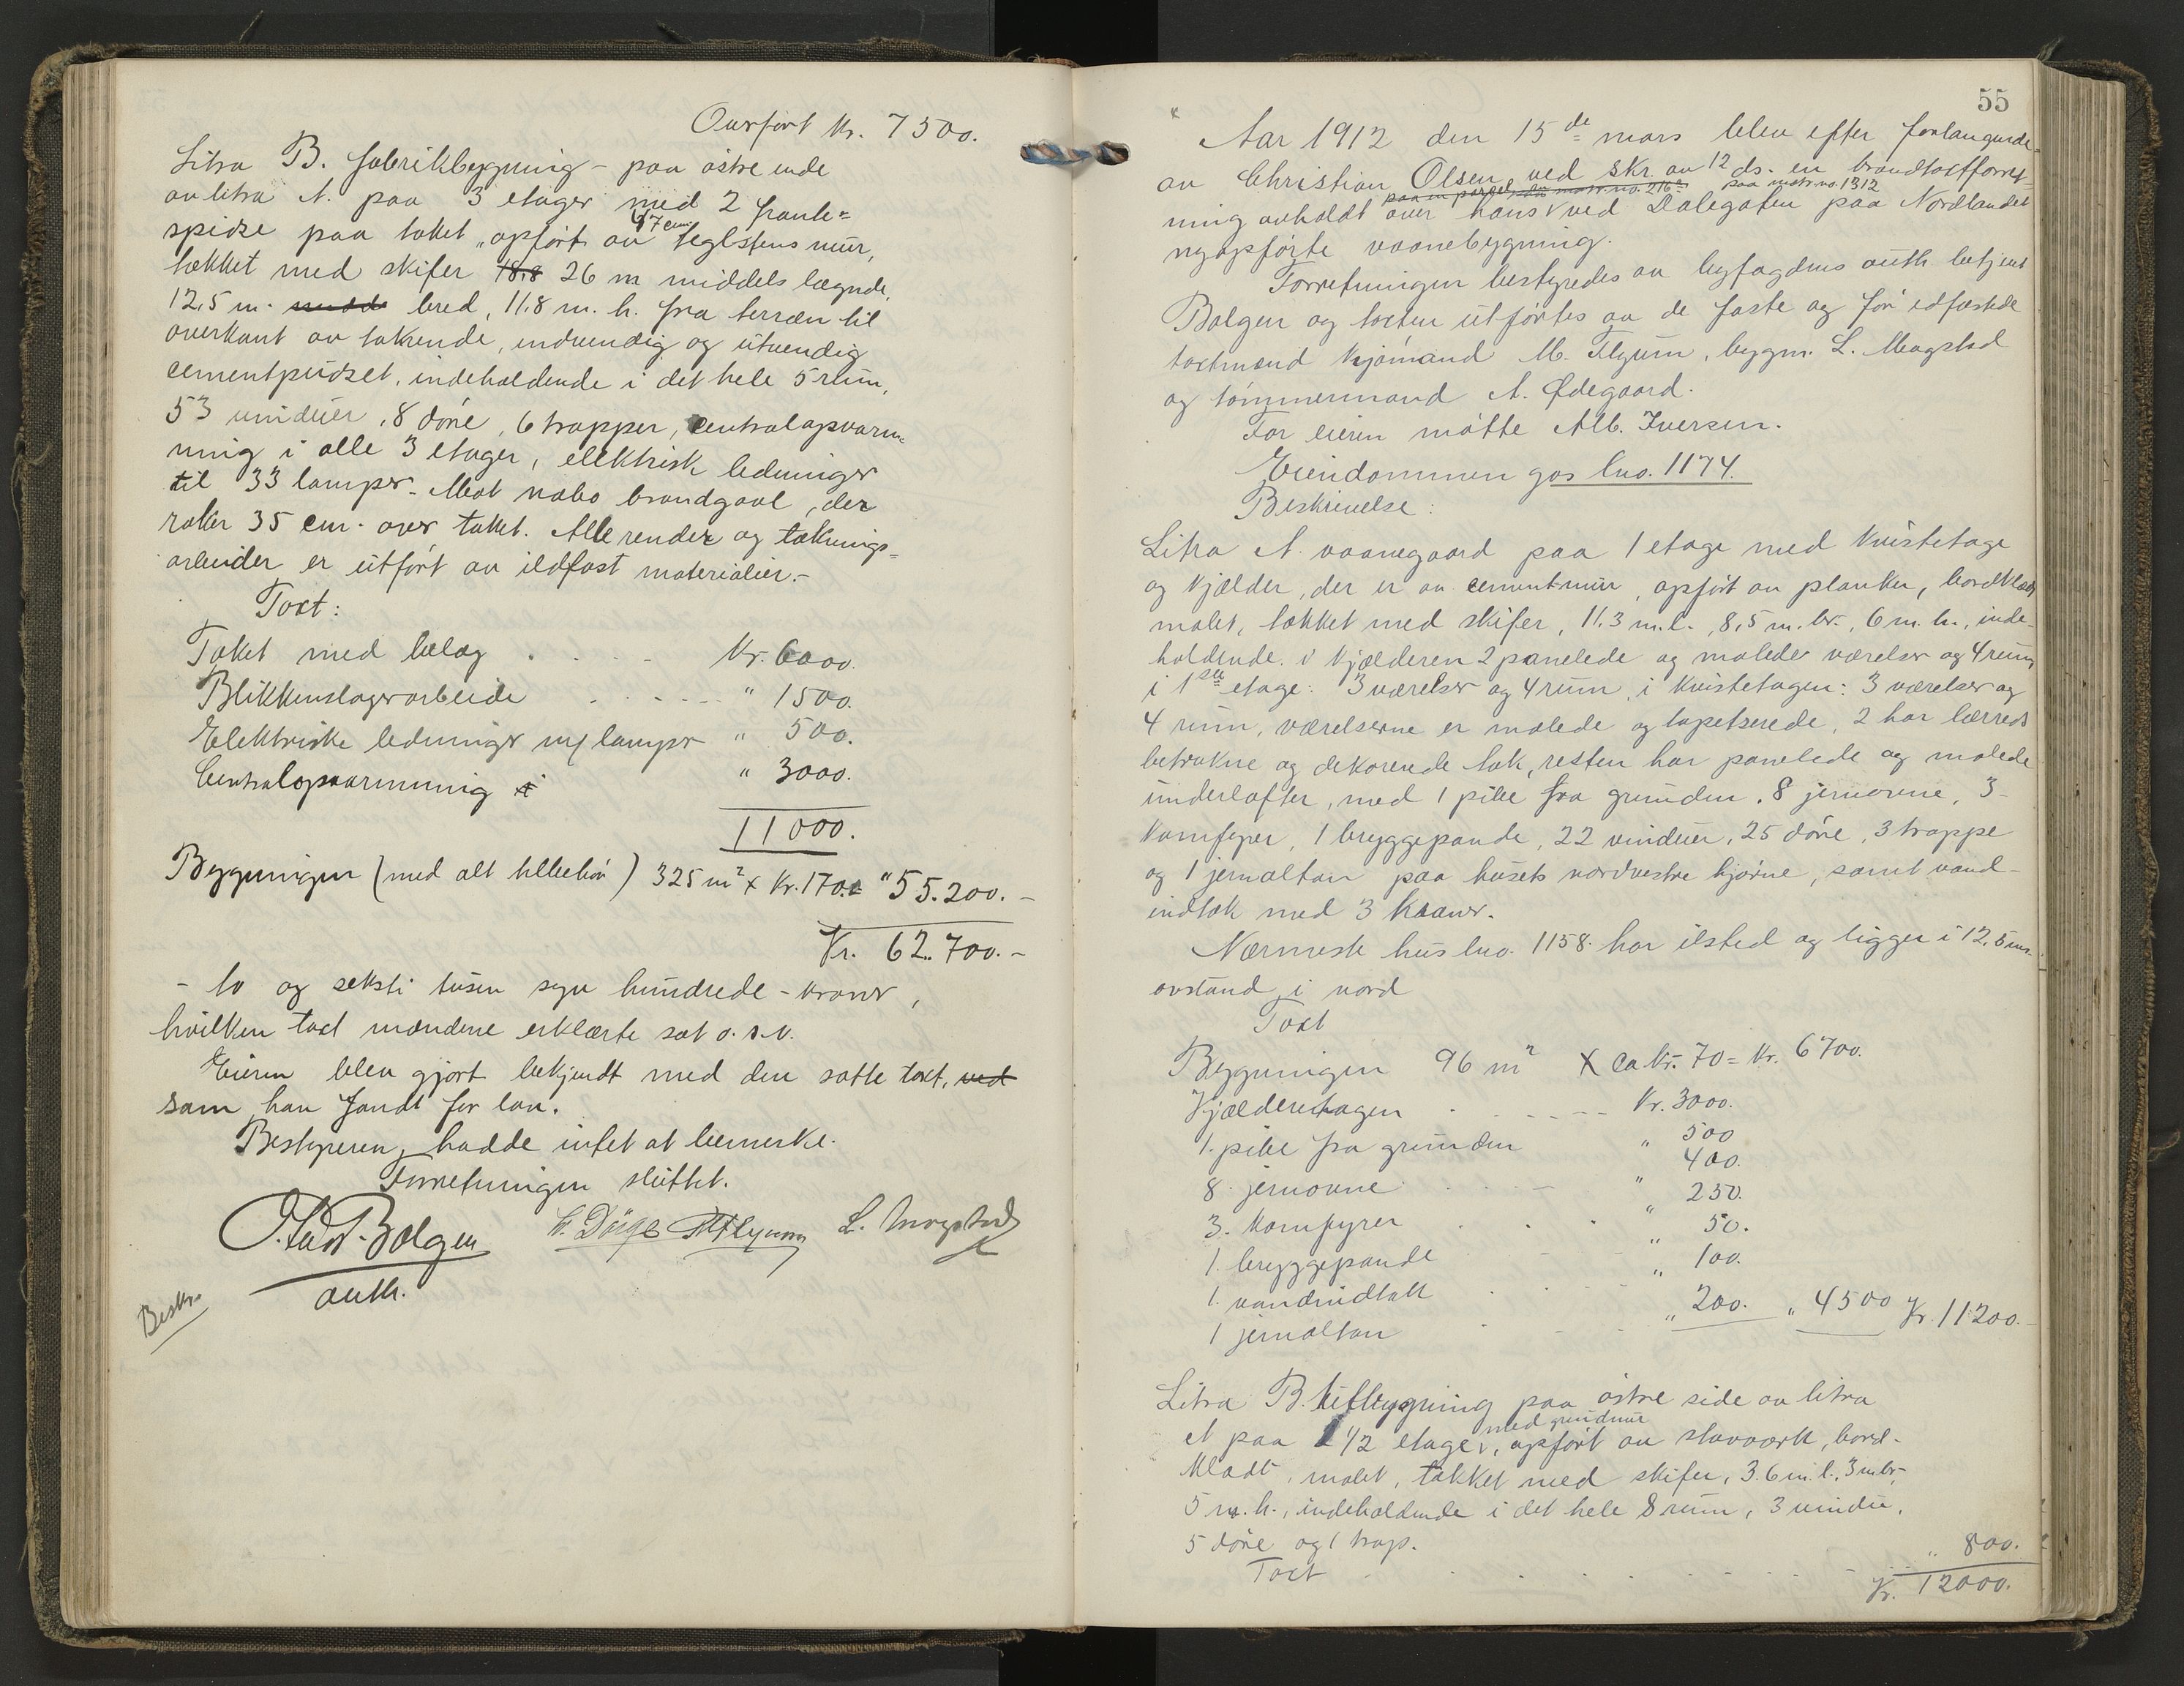 Overført kr. 7500.
Litra B. fabrikbygning – paa østre ende
av litra A. paa 3 etager med 2 frontespidse
paa taket, opført av 47 cm. teglstens mur,
tækket med skifer 18.8 26 m middels længde,
12.5 m. bred, 11.8 m. h. fra terræn til
overkant av takrende, indvendig og utvendig
cementpudset, indeholdende i det hele 5 rum,
53 vinduer, 8 døre, 6 trapper, centralopvarm=
ning i alle 3 etager, elektrisk ledninger
til 33 lamper. Mot nabo brandgavl, der
raker 35 cm. over taket. Alle render og tæknings=
arbeider er utført av ildfast materialier.–
Taxt:
Taket med belæg . . . . Kr. 6000.
Blikkenslagerarbeide . . . . " 1500.
Elektriske ledninger m/ lamper " 500.
Centralopvarmning i " 3000.
11000.
Bygningen (med alt tilbehør) 325 m² x Kr. 170.= " 55.200.–
Kr. 62.700.–
– to og seksti tusen syv hundrede – kroner,
hvilken taxt mændene erklærte sat o. s. v.
Eieren blev gjort bekjendt med den satte taxt, ved
som han fandt for lav.
Bestyreren hadde intet at bemerke.
Forretningen sluttet.
Bolgen L. Magstad
auth.
Beskr.
55
Aar 1912 den 15de mars blev efter forlangende
av Christian Olsen ved skr. av 12 ds. en brandtaxtforret=
paa en parcel av matr. no. 216a paa matr. no. 1312
ning avholdt over hans ved Dalegaten paa Nordlandet
nyopførte vaanebygning.
Forretningen bestyredes av byfogdens auth. betjent
Bolgen og taxten utførtes av de faste og før edfæstede
taxtmænd kjømand M. Flyum, bygm. L. Magstad
og tømmermand A. Ødegaard.
For eieren møtte Alb. Iversen.
Eiendommen gas lno. 1174.
Beskrivelse:
Litra A. vaanegaard paa 1 etage med kvistetage
og kjælder, der er av cementmur, opført av planker, bordklædt
malet, tækket med skifer, 11.3 m. l., 8,5 m. br., 6 m. h., inde-
holdende: i kjælderen 2 panelede og malede værelser og 4 rum,
i 1ste etage: 3 værelser og 4 rum, i kvistetagen: 3 værelser og
4 rum, værelserne er malede og tapetserede, 2 har lærreds
betrukne og dekorerede tak, resten har panelede og malede
underlofter, med 1 pibe fra grunden, 8 jernovne, 3
komfyrer, 1 bryggepande, 22 vinduer, 25 døre, 3 trapper
og 1 jernaltan paa husets nordvestre hjørne, samt vand-
indtak med 3 kraner.
Nærmeste hus lno. 1158 har ilsted og ligger i 12,5 ms.
avstand i nord
Taxt
Bygningen 96 m² x ca kr. 70 = Kr. 6700.
Kjælderetagen . . . . Kr. 3000.
1. pibe fra grunden " 500
8. jernovne . . . " 400.
3. komfyrer . . . " 250.
1. bryggepande " 50.
1. vandindtak . . " 100.
1 jernaltan . . . " 200. " 4500 Kr. 11200.–
Litra B. tilbygning paa østre side av litra
A paa 1 1/2 etage, med grundmur, opført av stavværk, bord-
klædt, malet, tækket med skifer, 3.6 m. l., 3 m. br.,
5 m. h., indeholdende i det hele 8 rum, 3 vindu,
5 døre og 1 trap.
Taxt . . . . . . . . " 800.
Kr. 12000.